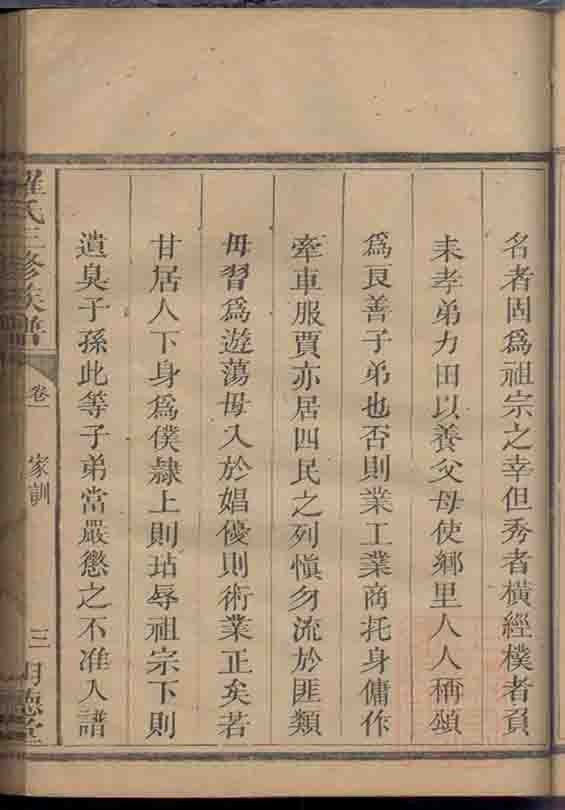 名者固爲祖宗之幸但秀者橫經樸者負
耒孝弟力田以養父母使鄉里人人稱頌
爲良善子弟也否則業工業商托身傭作
牽車服賈亦居四民之列愼勿流於匪類
毋習爲遊蕩毋入於娼優則術業正矣若
甘居人下身爲僕隸上則玷辱祖宗下則
遺臭子孫此等子弟當嚴懲之不准入譜
羅氏三修族譜 卷一 家訓 三 明德堂